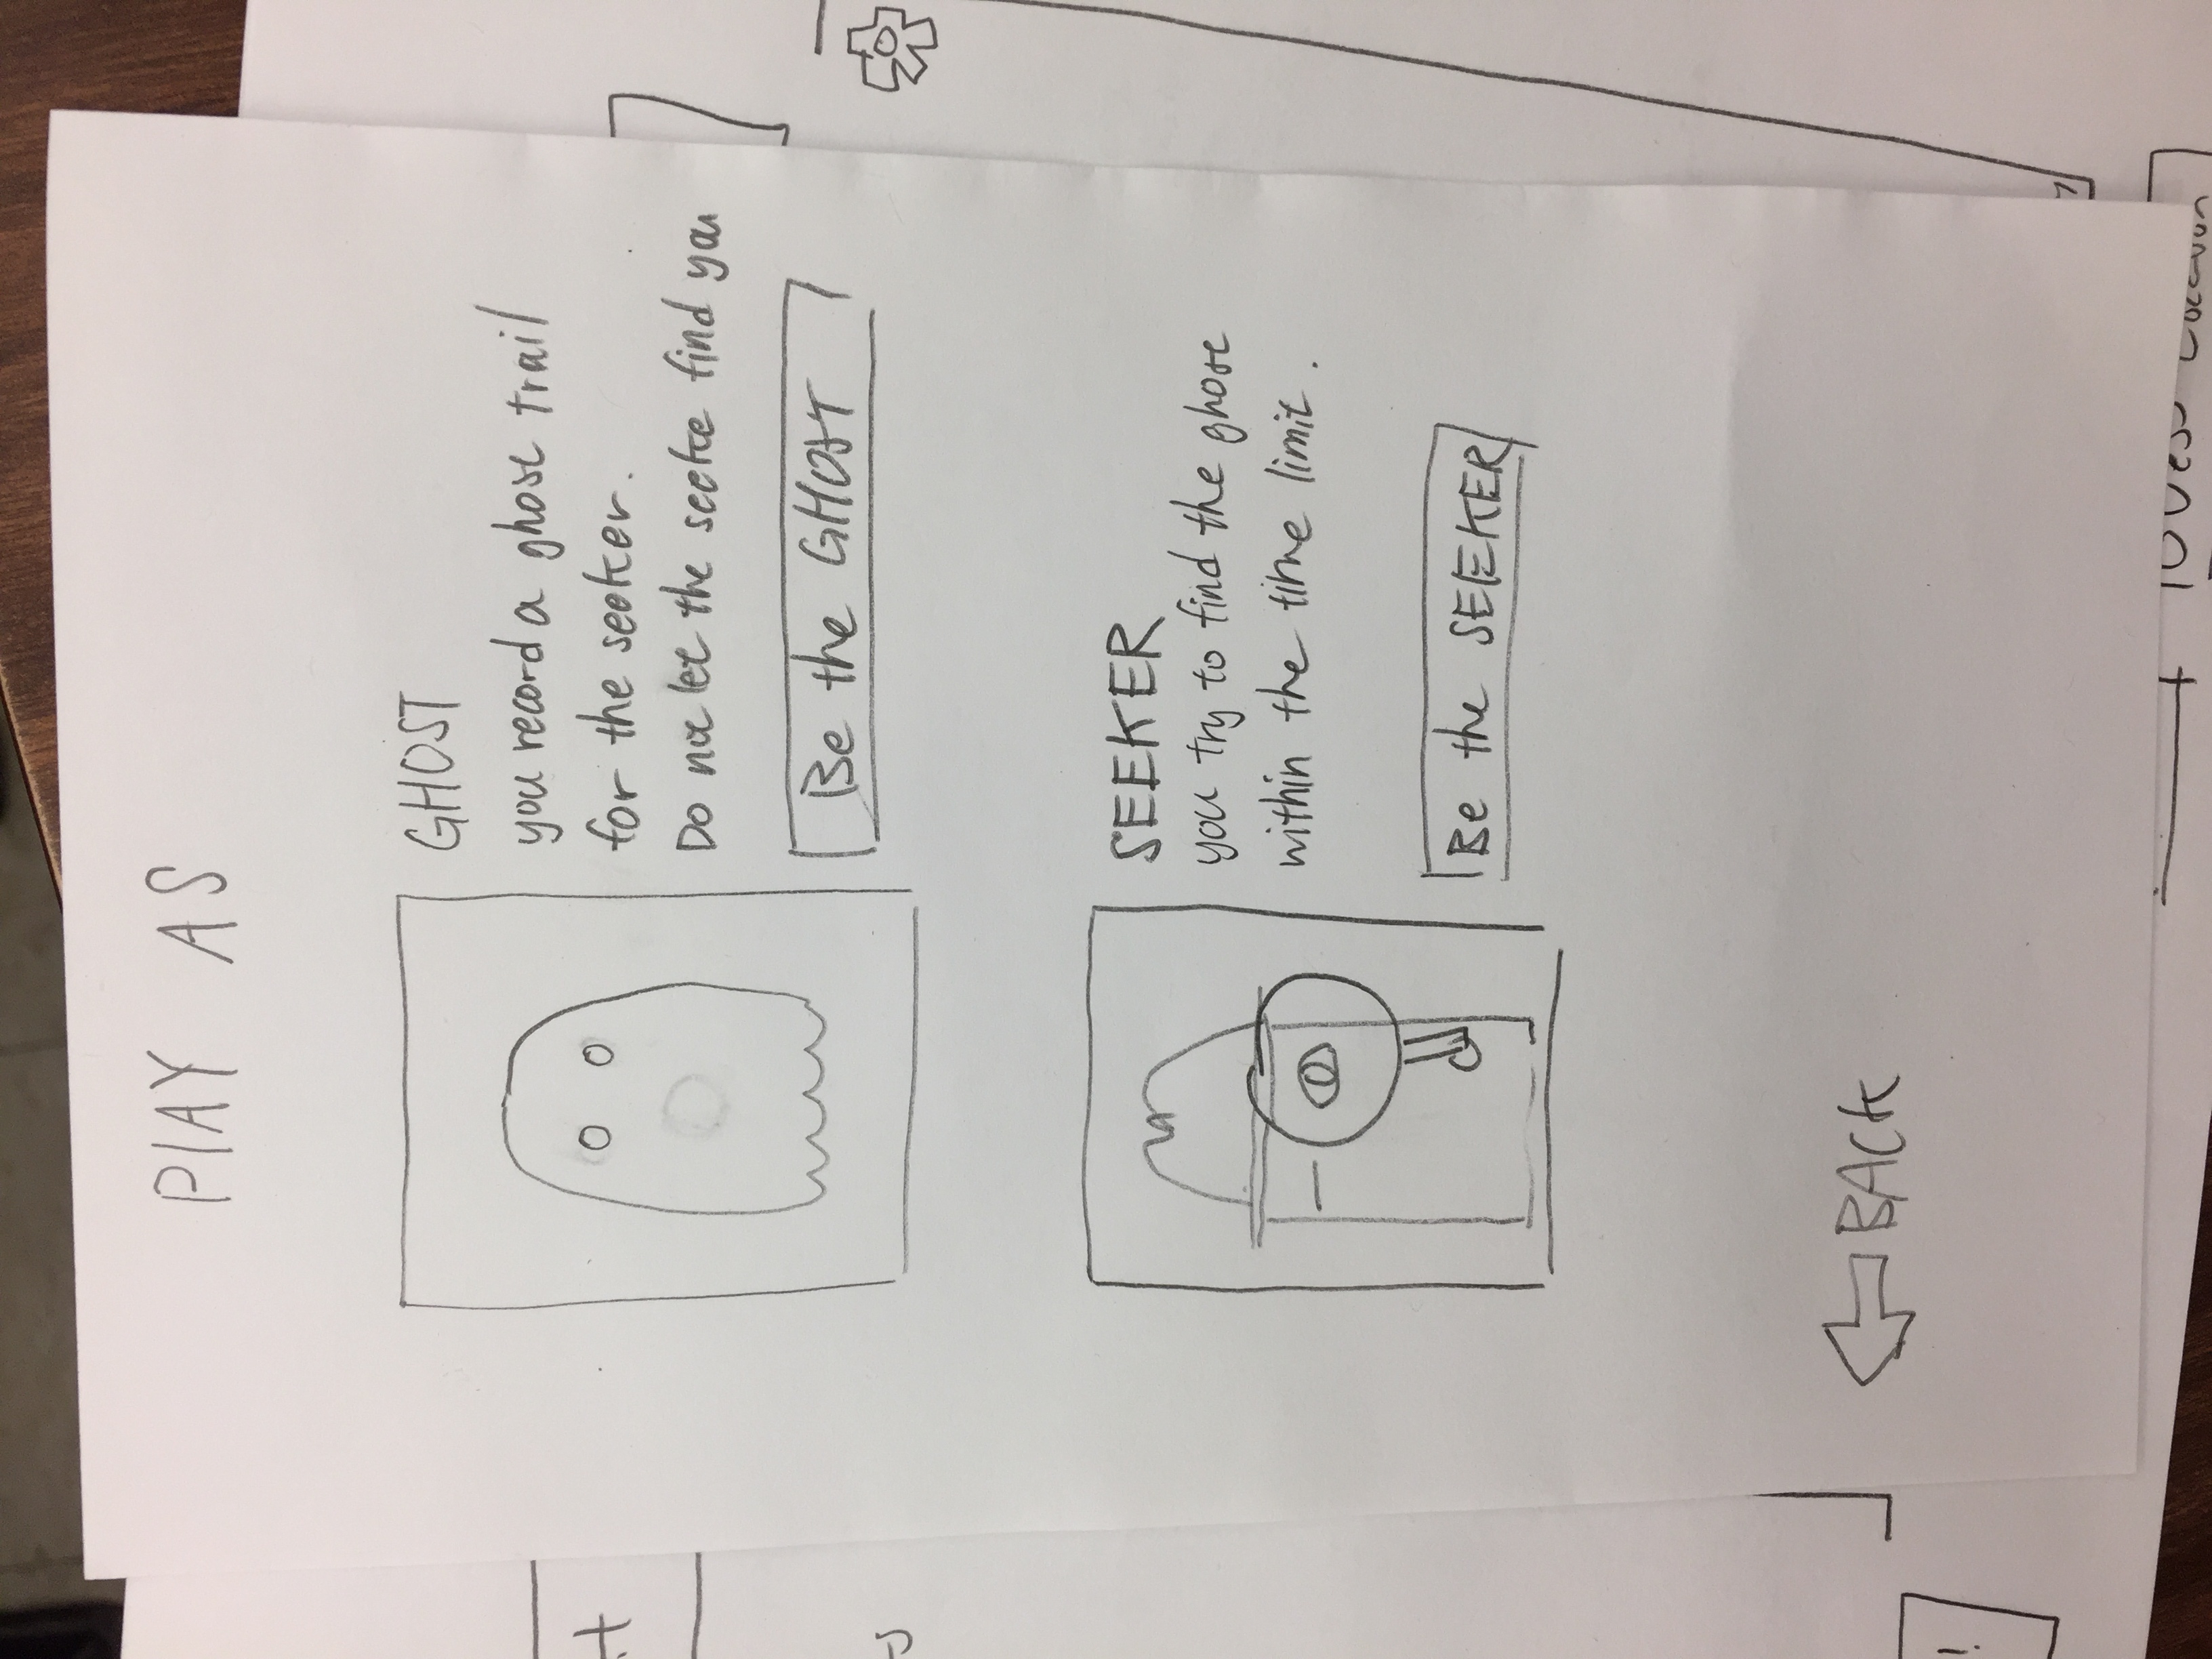 PlAY AS
GHOST
you record a ghost trail
for the seeker.
Do not let the seeke find you
Be the GHOST
SEEKER
you try to find the ghost
within the time limit.
Be the SEEKER
BACK
!